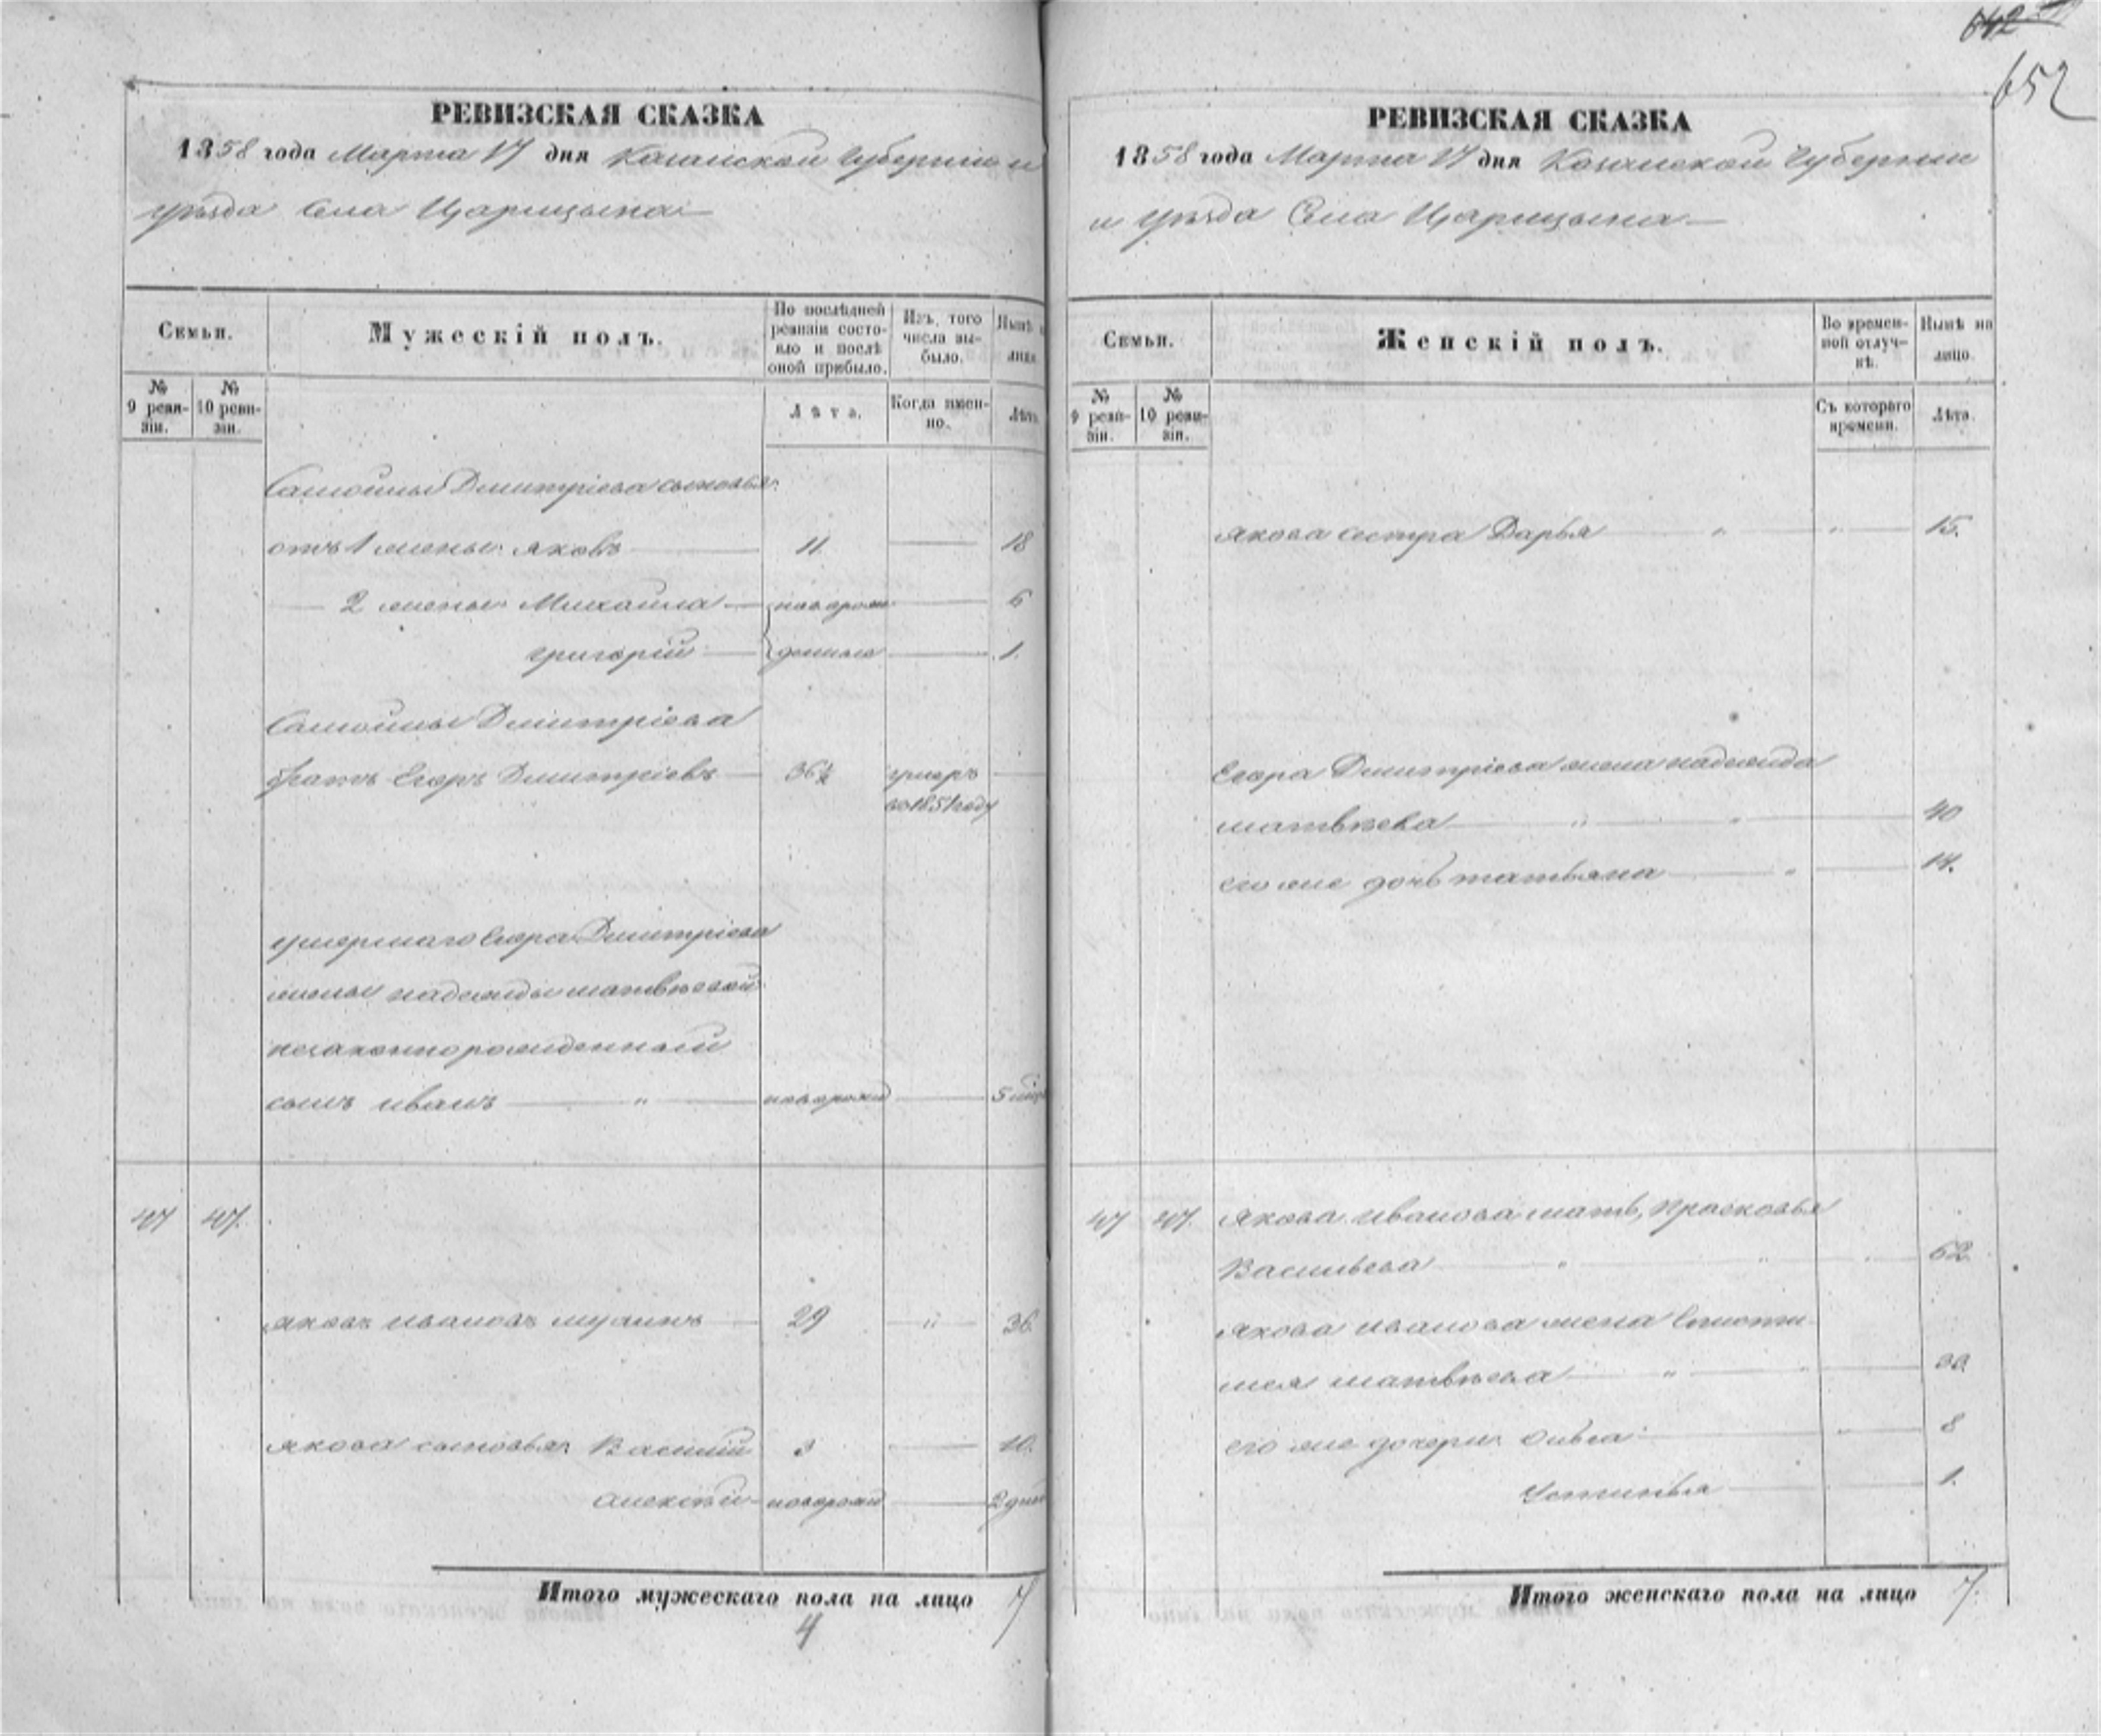 642
652
РЕВИЗСКАЯ СКАЗКА
1858 года Марта 17 дня Казанской Губерніи и
уѣзда Села Царицына
Семьи.
Мужескій полъ.
По послѣдней ревизіи состояло и послѣ оной прибыло.
Изъ того числа выбыло.
Нынѣ на лицо.
№ 9 ревизіи.
№ 10 ревизіи.
Лѣта.
Когда именно.
Лѣта.
Самойлы Дмитріева сыновья:
отъ 1 жены Яковъ 11 18
2 жены Михаила новорож 6
Григорій денные 1.
Самойлы Дмитріева
братъ Егоръ Дмитріевъ 36½ умеръ
въ 1851 году
умершаго Егора Дмитріева
жены Надежды Матвѣевой
незаконнорожденный
сынъ Иванъ " новорожд 5
47 47.
Яковъ Ивановъ " 29 " 36.
Якова сыновья Василій 3 10.
Алексѣй новорожд 2 дней
Итого мужескаго пола на лицо 7
4
РЕВИЗСКАЯ СКАЗКА
1858 года Марта 17 дня Казанской Губерніи
и уѣзда Села Царицына
Семьи.
Женскій полъ.
Во временной отлучкѣ.
Нынѣ на лицо.
№ 9 ревизіи.
№ 10 ревизіи.
Съ котораго времени.
Лѣта.
Якова сестра Дарья " " 15.
Егора Дмитріева жена Надежда
Матвѣева " " 40
его же дочь Татьяна " 14.
47 47. Якова Иванова мать, Прасковья
Васильева " " 62.
Якова Иванова жена
Матвѣева " "
его же дочери Ольга " 8
Устинья 1.
Итого женскаго пола на лицо 7.